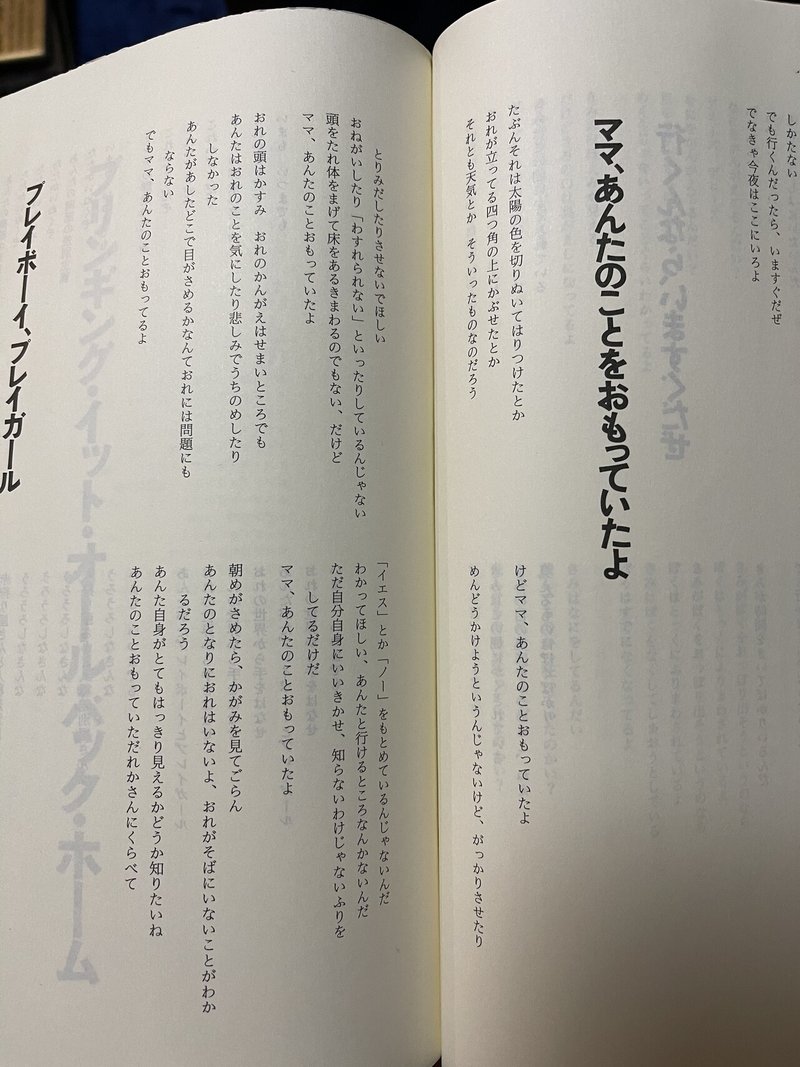 しかたない
でも行くんだったら、いますぐだぜ
でなきゃ今夜はここにいろよ
ママ、あんたのことをおもっていたよ
たぶんそれは太陽の色を切りぬいてはりつけたとか
おれが立ってる四つ角の上にかぶせたとか
それとも天気とか そういったものなのだろう
けどママ、あんたのことおもっていたよ
めんどうかけようというんじゃないけど、がっかりさせたり
とりみだしたりさせないでほしい
おねがいしたり「わすれられない」といったりしているんじゃない
頭をたれ体をまげて床をあるきまわるのでもない、だけど
ママ、あんたのことおもっていたよ
おれの頭はかすみ おれのかんがえはせまいところでも
あんたはおれのことを気にしたり悲しみでうちのめしたり
しなかった
あんたがあしたどこで目がさめるかなんておれには問題にも
ならない
でもママ、あんたのことおもってるよ
「イエス」とか「ノー」をもとめているんじゃないんだ
わかってほしい、あんたと行けるところなんかないんだ
ただ自分自身にいいきかせ、知らないわけじゃないふりを
してるだけだ
ママ、あんたのことおもっていたよ
朝めがさめたら、かがみを見てごらん
あんたのとなりにおれはいないよ、おれがそばにいないことがわか
るだろう
あんた自身がとてもはっきり見えるかどうか知りたいね
あんたのことおもっていただれかさんにくらべて
プレイボーイ、プレイガール